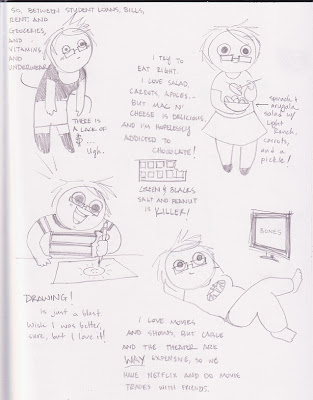 SO, BETWEEN STUDENT LOANS, BILLS,
RENT, AND
GROCERIES,
AND...
VITAMINS,
AND
UNDERWEAR...
THERE IS
A LACK OF
$...
Ugh.
I TRY TO
EAT RIGHT.
I LOVE SALAD,
CARROTS, APPLES...
BUT MAC N'
CHEESE IS DELICIOUS,
AND I'M HOPELESSLY
ADDICTED TO
CHOCOLATE!
spinach &
arugula
salad w/
light
Ranch,
carrots,
and a
pickle!
GREEN & BLACKS
SALT AND PEANUT
IS KILLER!
DRAWING!
is just a blast.
Wish I was better,
sure, but I love it!
BONES
I LOVE MOVIES
AND SHOWS, BUT CABLE
AND THE THEATER ARE
WAY EXPENSIVE, SO WE
HAVE NETFLIX AND DO MOVIE
TRADES WITH FRIENDS.